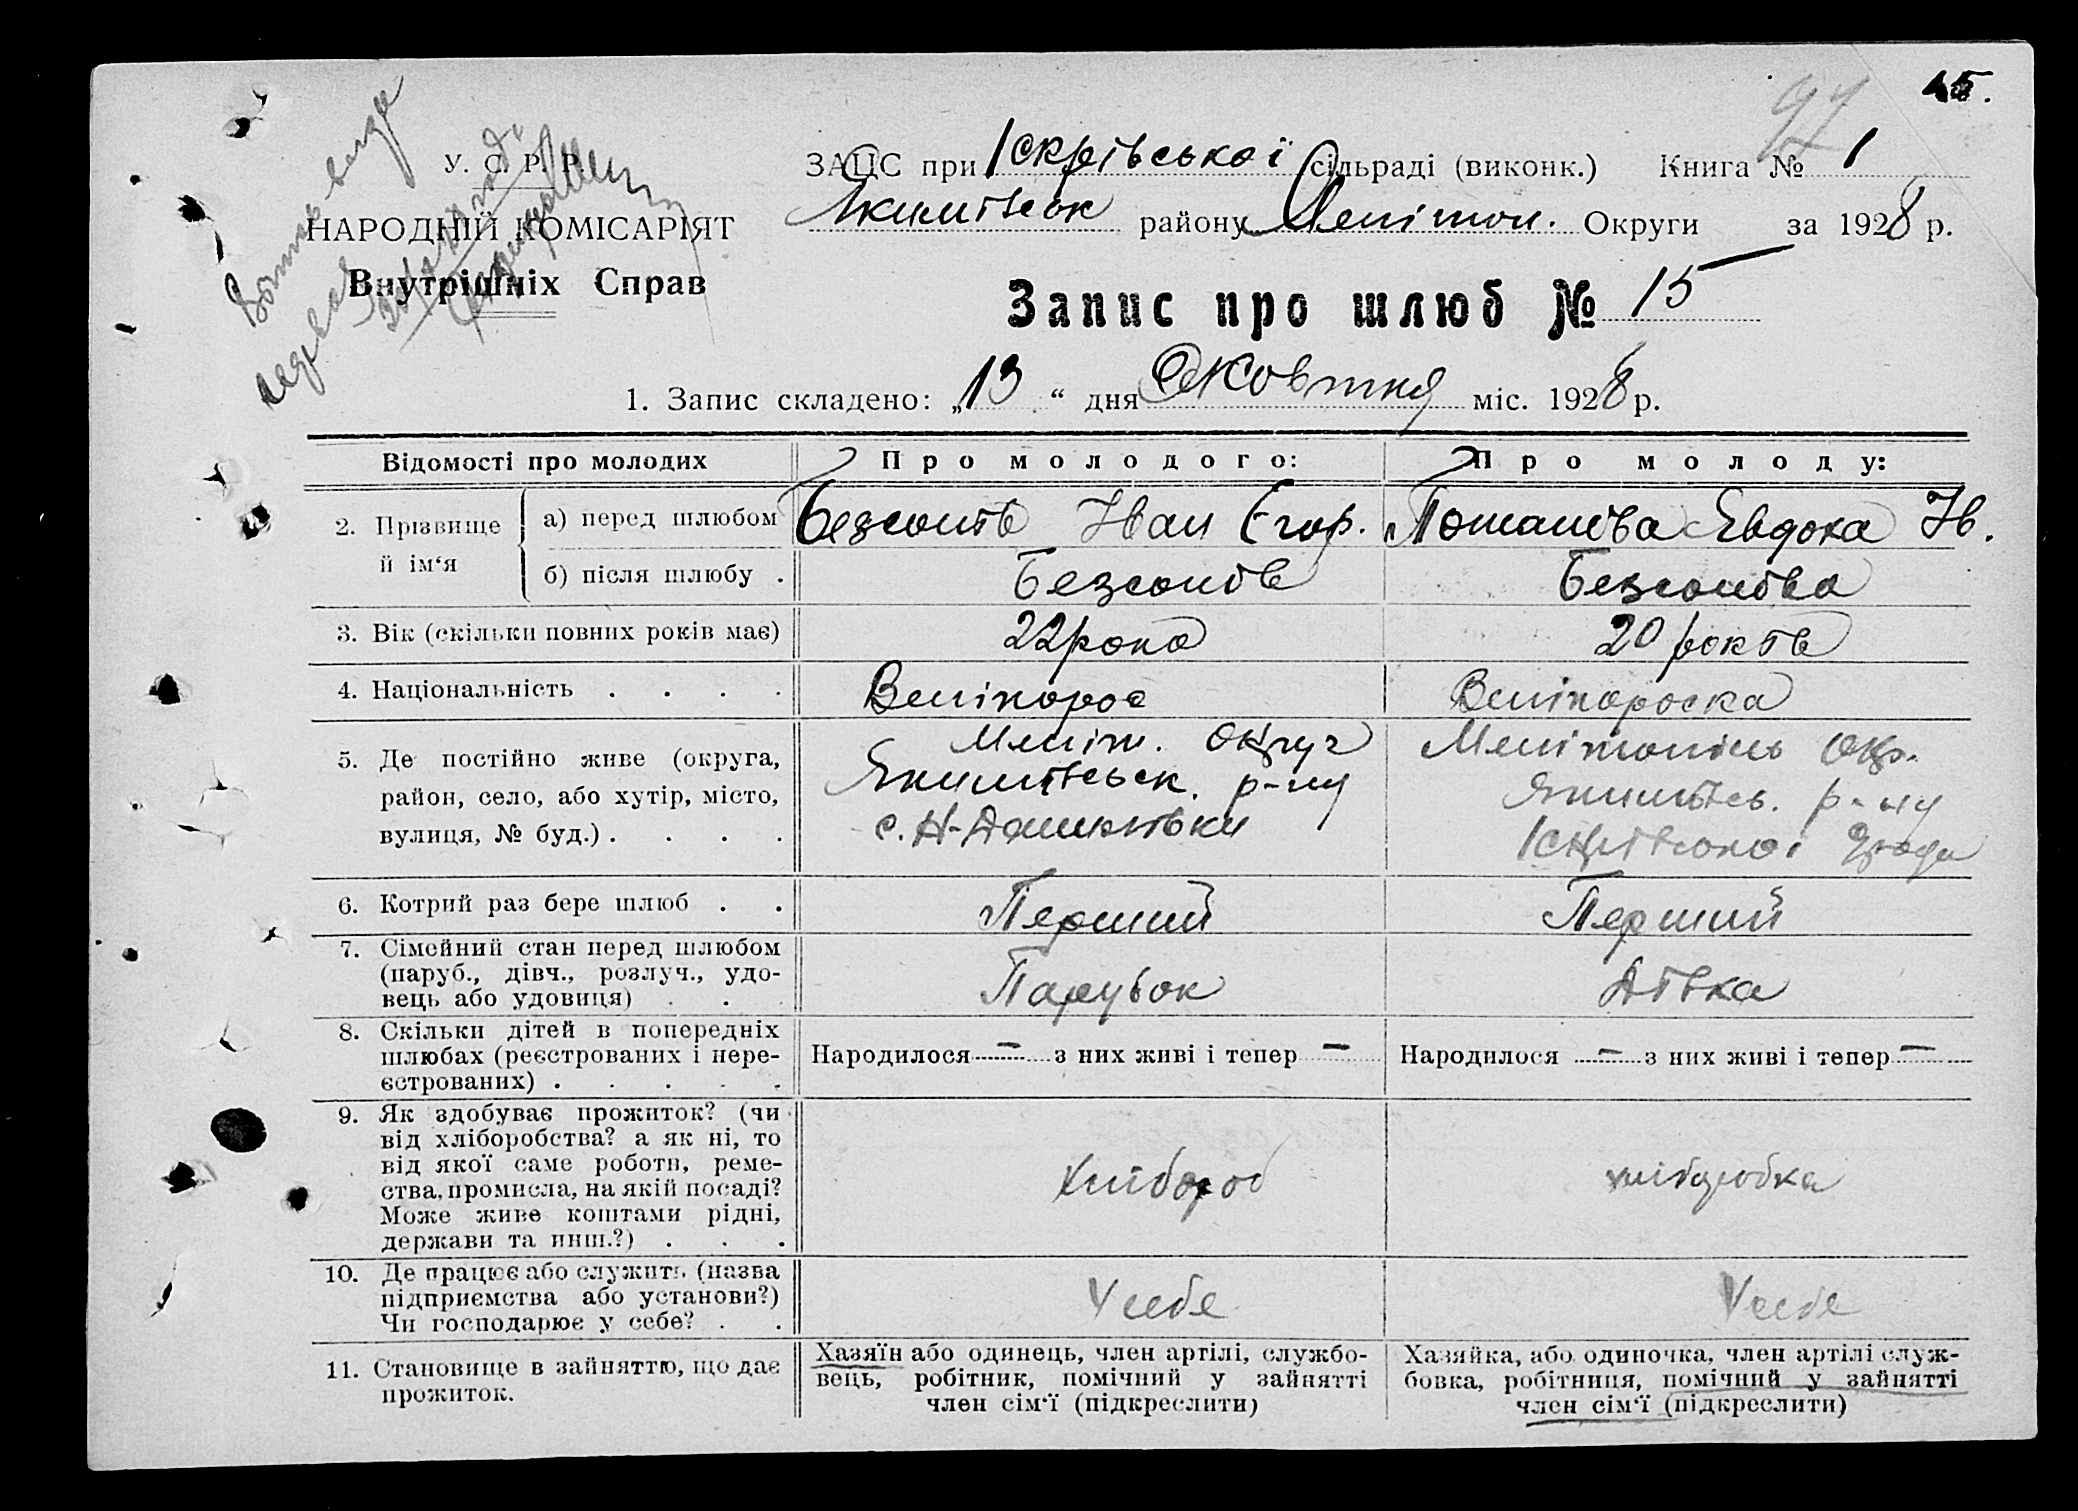 97 15.
У. С. Р. Р.
НАРОДНІЙ КОМІСАРІЯТ
Внутрішніх Справ
ЗАЦС при Іскрівської сільраді (виконк.) Книга № 1
Якимівськ району Мелітоп. Округи за 1928 р.
Запис про шлюб № 15
1. Запис складено: „13“ дня Жовтня міс. 1928 р.
Відомості про молодих Про молодого: Про молоду:
2. Прізвище й ім‘я
а) перед шлюбом Безсонів Іван Єгор. Потапова Евдока Ів.
б) після шлюбу . Безсонів Безсонова
3. Вік (скільки повних років має) 22 рока 20 років
4. Національність . . . . Велікорос Велікороска
5. Де постійно живе (округа,
район, село, або хутір, місто,
вулиця, № буд.) . . . .
Меліт. округ
Якимівськ. р-ну
с. Н-Данилівки
Мелітопіль окр.
Якимівсь. р-ну
6. Котрий раз бере шлюб . . Перший Перший
7. Сімейний стан перед шлюбом
(паруб., дівч., розлуч., удо-
вець або удовиця) . . Парубок Дівка
8. Скільки дітей в попередніх
шлюбах (реєстрованих і нере-
єстрованих) . . . . .
Народилося — з них живі і тепер —
Народилося — з них живі і тепер —
9. Як здобуває прожиток? (чи
від хліборобства? а як ні, то
від якої саме роботи, реме-
ства, промисла, на якій посаді?
Може живе коштами рідні,
держави та инш.?) . . .
хлібороб
хліборобка
10. Де працює або служить (назва
підприємства або установи?)
Чи господарює у себе? . .
У себе
У себе
11. Становище в зайняттю, що дає
прожиток.
Хазяїн або одинець, член артілі, службо-
вець, робітник, помічний у зайнятті
член сім‘ї (підкреслити)
Хазяйка, або одиночка, член артілі служ-
бовка, робітниця, помічний у зайнятті
член сім‘ї (підкреслити)